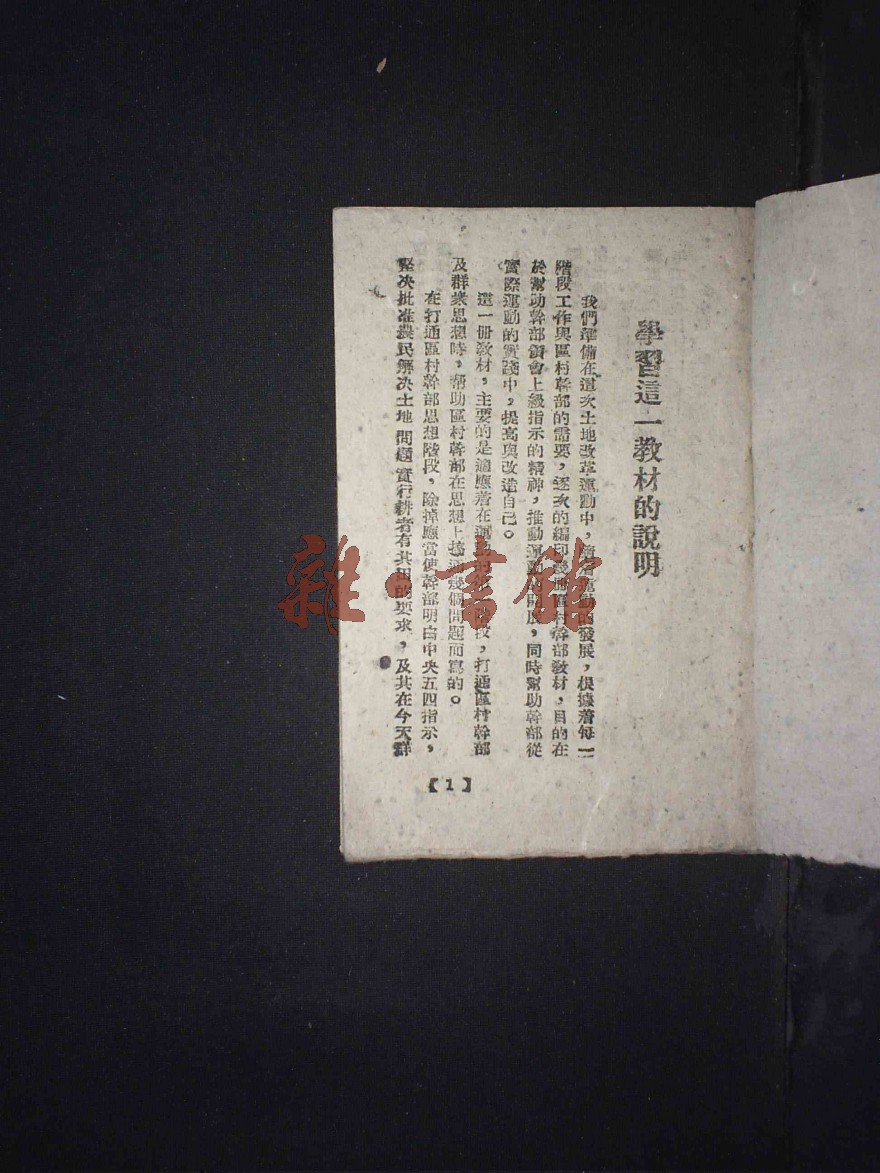 學習這一教材的說明
我們準備在這次土地改革運動中，隨着運動的發展，根據着每一
階段工作與區村幹部的需要，逐次的編印幾冊區村幹部教材，目的在
於幫助幹部領會上級指示的精神，推動運動的開展，同時幫助幹部從
實際運動的實踐中，提高與改造自己。
這一冊教材，主要的是適應着在運動的第一階段，打通區村幹部
及群衆思想時，幫助區村幹部在思想上搞通幾個問題而寫的。
在打通區村幹部思想階段，除掉應當使幹部明白中央五四指示，
堅决批准農民解决土地問題實行耕者有其田的要求，及其在今天群
【1】
雜·書館